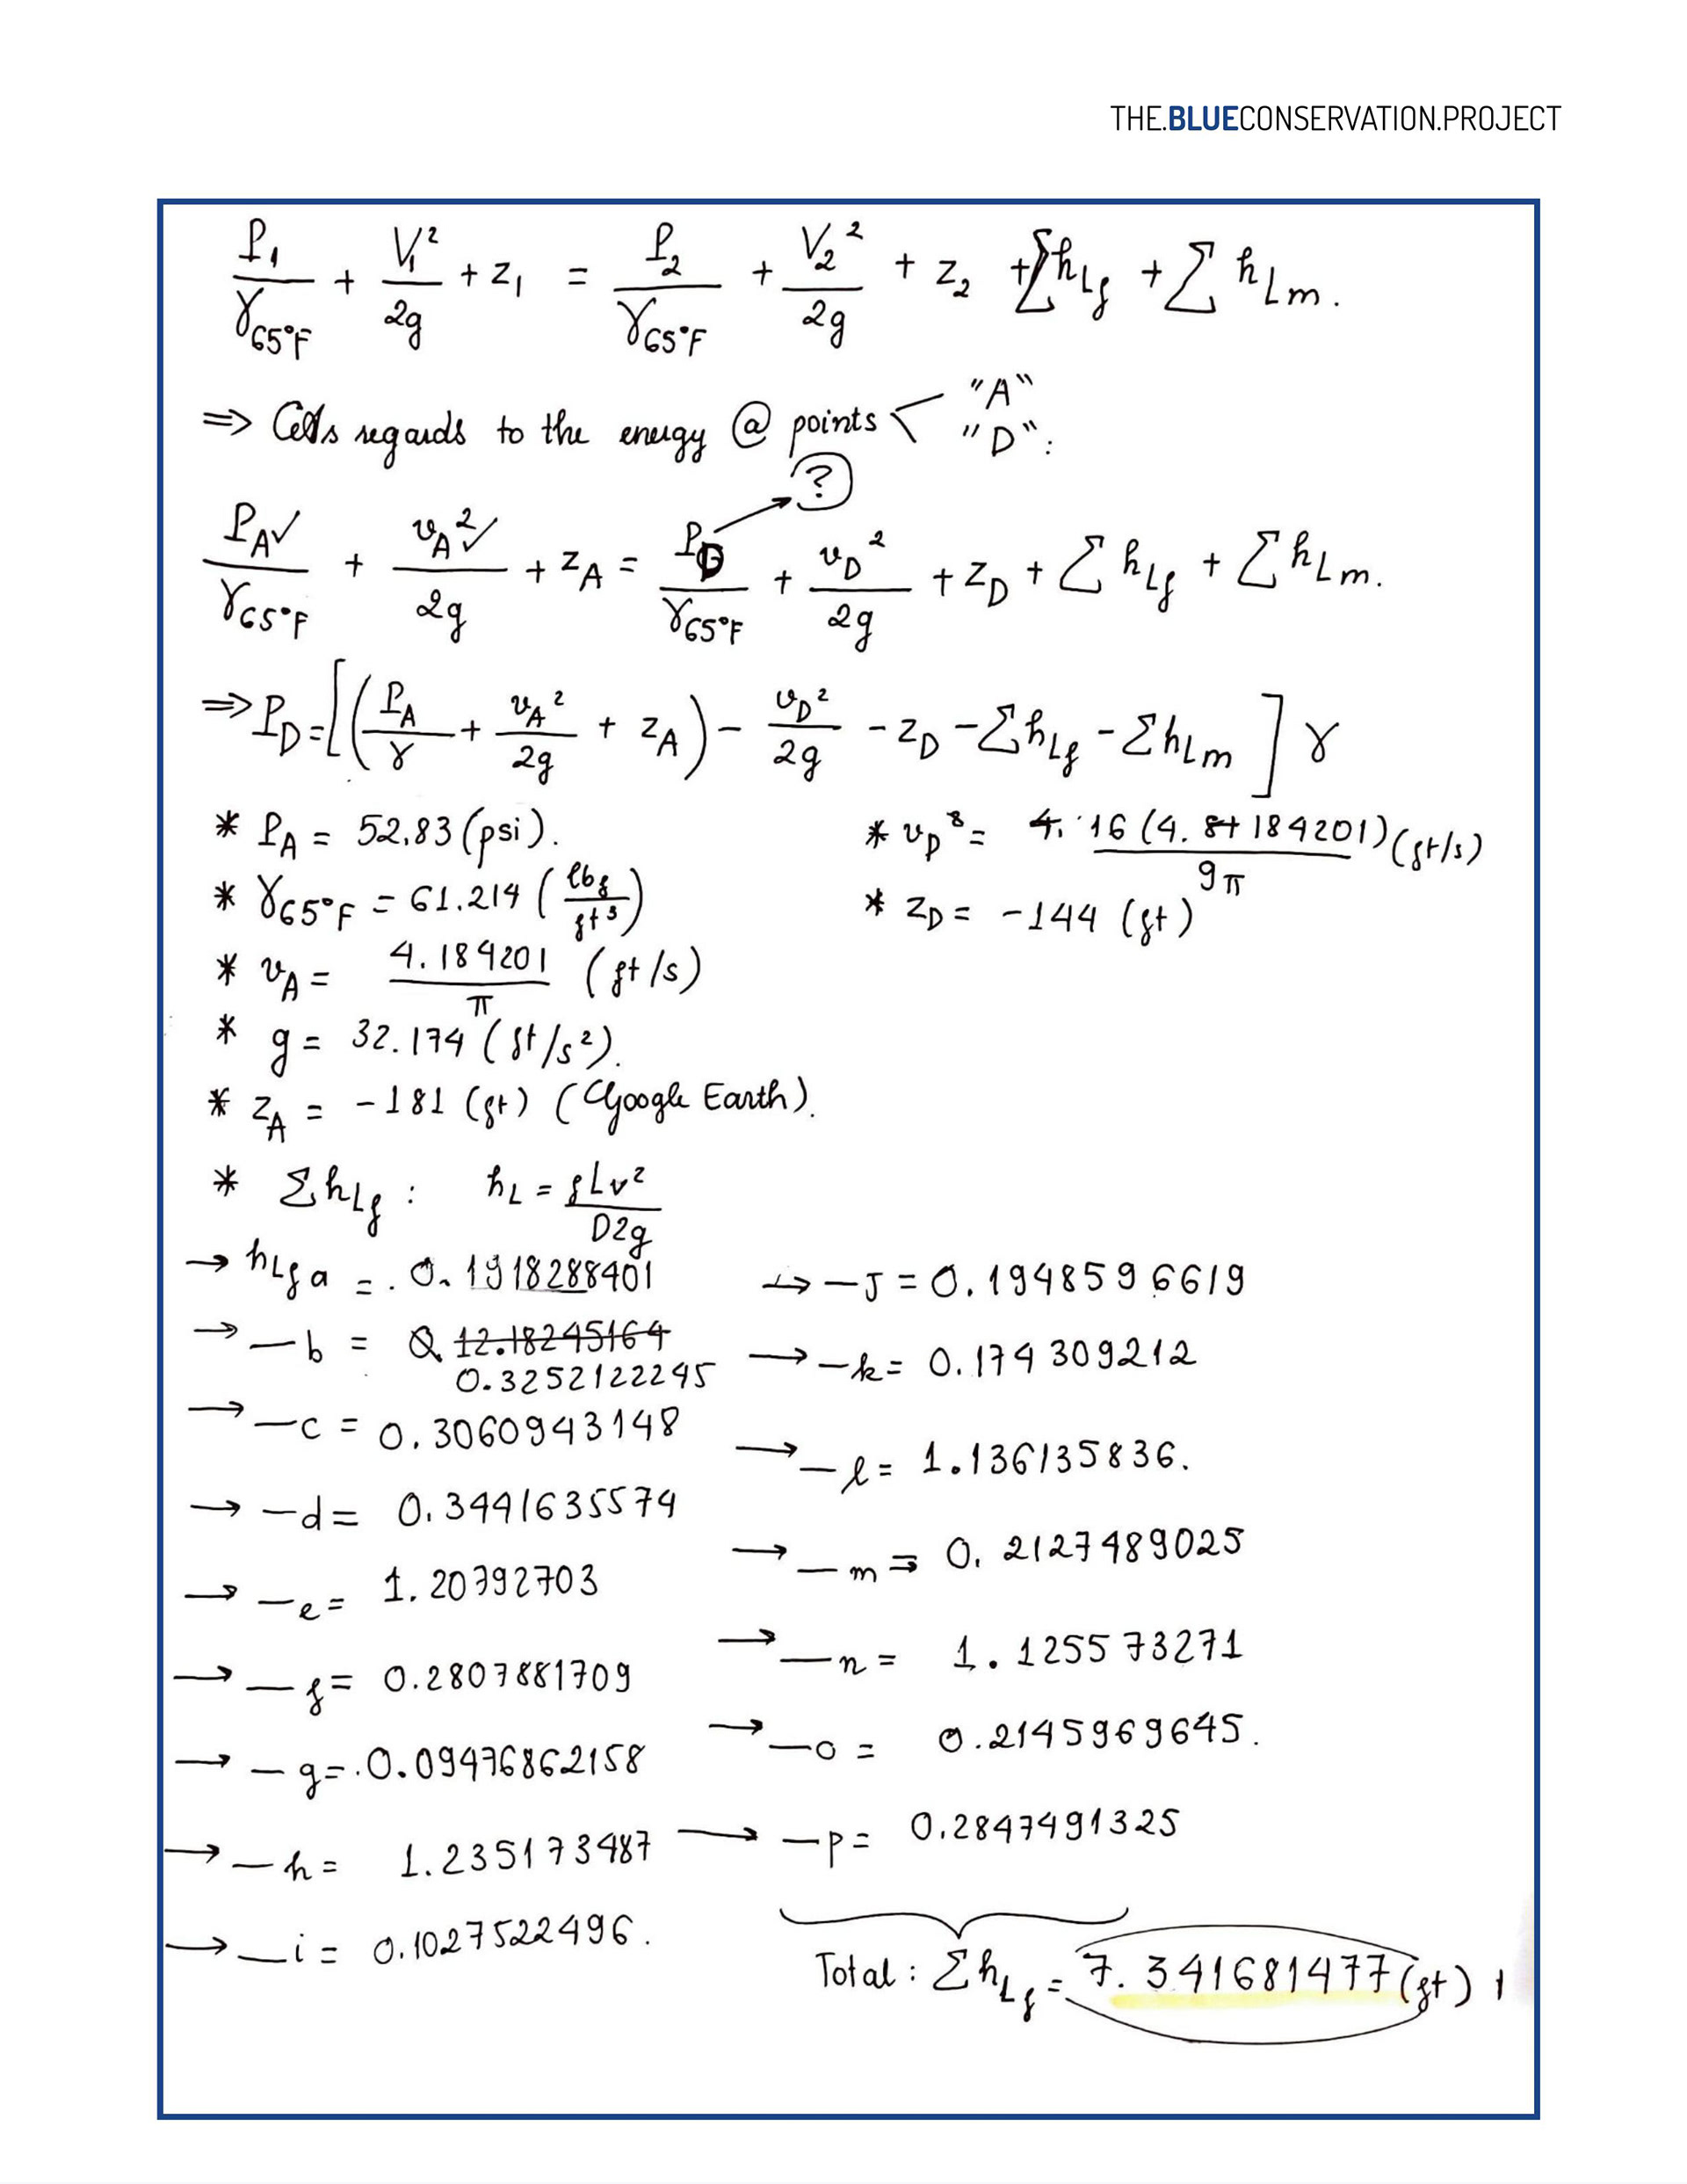 THE.BLUECONSERVATION.PROJECT
P₁/γ65°F + V₁²/2g + z₁ = P₂/γ65°F + V₂²/2g + z₂ + ΣhLf + ΣhLm.
=> regards to the energy @ points < "A" "D":
?
PA✓/γ65°F + vA²✓/2g + zA = PD/γ65°F + vD²/2g + zD + ΣhLf + ΣhLm.
=> PD = [(PA/γ + vA²/2g + zA) - vD²/2g - zD - ΣhLf - ΣhLm] γ
* PA = 52.83 (psi).
* γ65°F = 61.214 (lbf/ft³)
* vA = 4.184201/π (ft/s)
* g = 32.174 (ft/s²).
* zA = -181 (ft) (Google Earth).
* vD = 16(4.184201)/9π (ft/s)
* zD = -144 (ft)
* ΣhLf : hL = fLv²/D2g
→ hLf a = 0.1918288401
→ — b = 12.18245164
0.3252122245
→ — c = 0.3060943148
→ — d = 0.3441635574
→ — e = 1.20792703
→ — f = 0.2807881709
→ — g = 0.09476862158
→ — h = 1.235173487
→ — i = 0.1027522496.
→ — J = 0.1948596619
→ — k = 0.174309212
→ — l = 1.136135836.
→ — m = 0.2127489025
→ — n = 1.125573271
→ — o = 0.2145969645.
→ — p = 0.2847491325
Total : ΣhLf = 7.341681477 (ft)